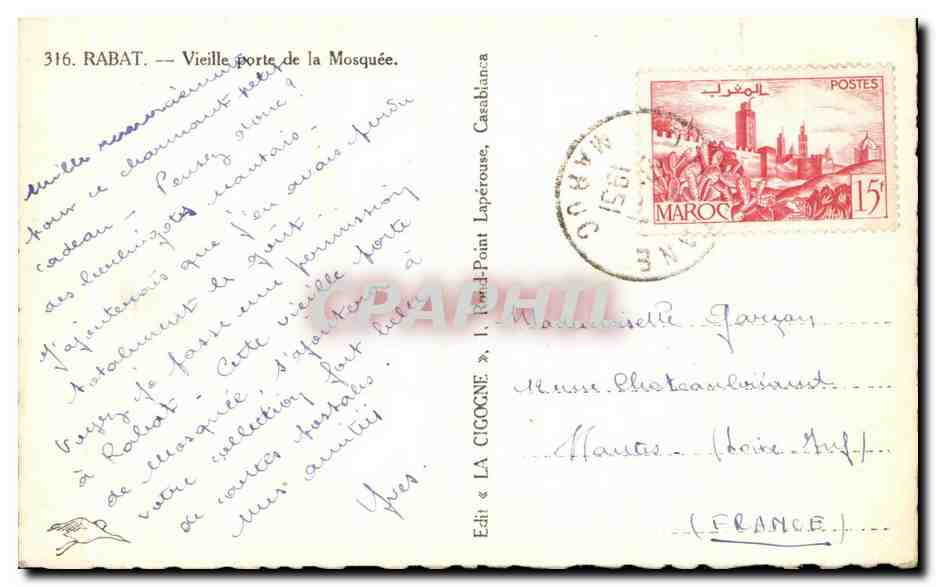 316. RABAT. — Vieille porte de la Mosquée.
Mille
pour ce charmant petit
cadeau — Pensez donc !
des berlingots nantais —
J'ajouterais que j'en avais perdu
totalement le goût —
Voyez je passe une permission
à Rabat — Cette vieille porte
de Mosquée s'ajoutera à
votre collection fort belle
de cartes postales.
Mes amitiés
Yves.
Edit « LA CIGOGNE », 1. Rond-Point Lapérouse, Casablanca
المغرب
POSTES
MAROC
15f
MAROC
1951
Mademoiselle Garzon
Musée
Nantes — (Loire Inf)
(FRANCE)
CPAPHIL